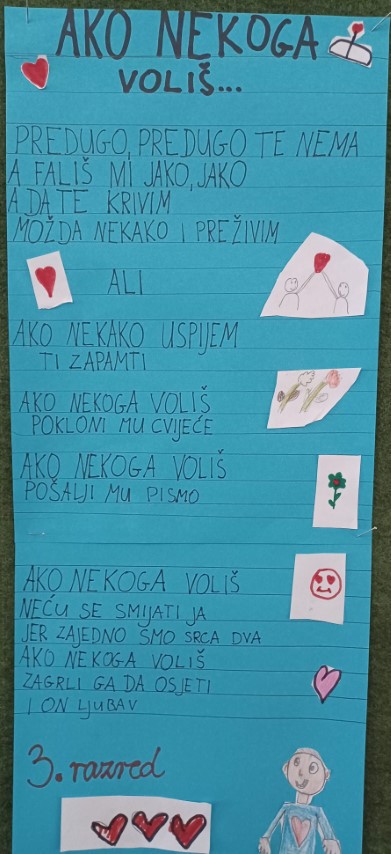 AKO NEKOGA
VOLIŠ...
PREDUGO, PREDUGO TE NEMA
A FALIŠ MI JAKO, JAKO
A DA TE KRIVIM
MOŽDA NEKAKO I PREŽIVIM
ALI
AKO NEKAKO USPIJEM
TI ZAPAMTI
AKO NEKOGA VOLIŠ
POKLONI MU CVIJEĆE
AKO NEKOGA VOLIŠ
POŠALJI MU PISMO
AKO NEKOGA VOLIŠ
NEĆU SE SMIJATI JA
JER ZAJEDNO SMO SRCA DVA
AKO NEKOGA VOLIŠ
ZAGRLI GA DA OSJETI
I ON LJUBAV
3. razred